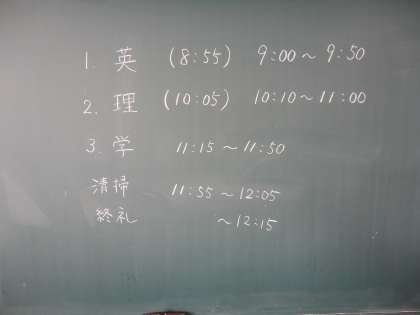 1. 英 (8:55) 9:00～9:50
2. 理 (10:05) 10:10～11:00
3. 学 11:15～11:50
清掃 11:55～12:05
終礼 ～12:15